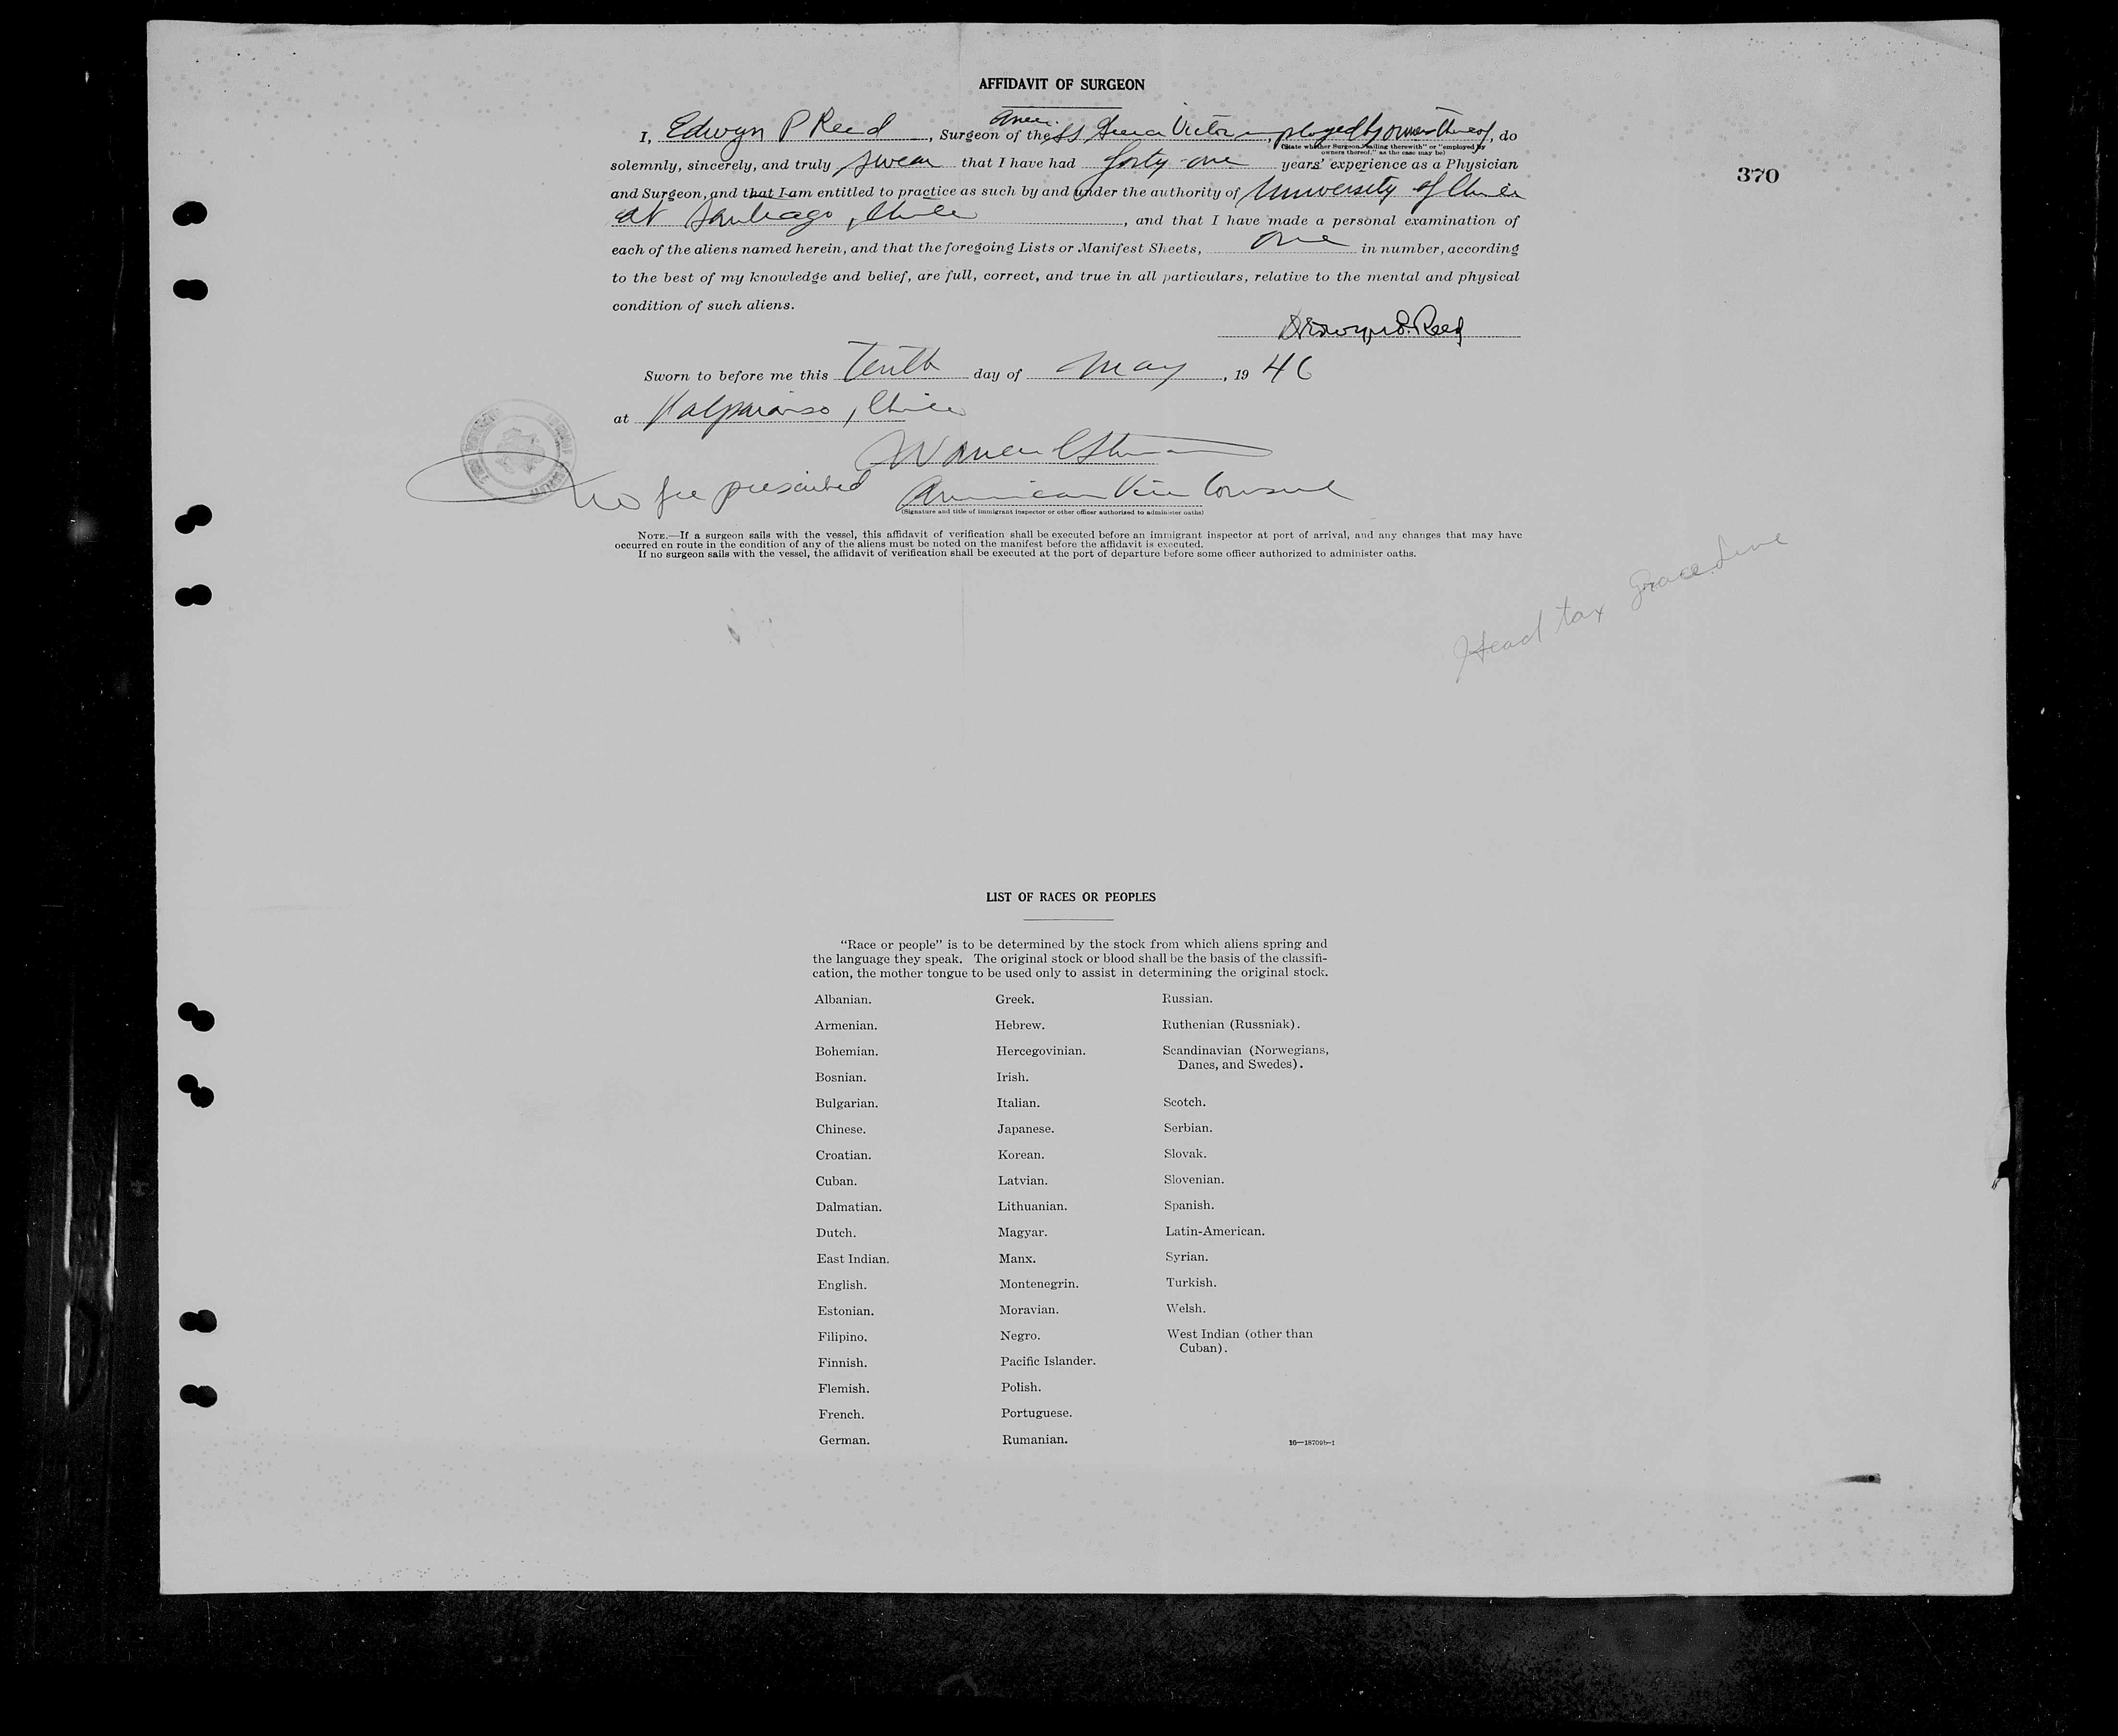 AFFIDAVIT OF SURGEON
370
Amer.
I, Edwyn P Reed, Surgeon of the SS Victor employed by owners thereof, do
(State whether Surgeon "sailing therewith" or "employed by
owners thereof," as the case may be)
solemnly, sincerely, and truly swear that I have had forty-one years' experience as a Physician
and Surgeon, and that I am entitled to practice as such by and under the authority of University of Chile
at Santiago, Chile, and that I have made a personal examination of
each of the aliens named herein, and that the foregoing Lists or Manifest Sheets, one in number, according
to the best of my knowledge and belief, are full, correct, and true in all particulars, relative to the mental and physical
condition of such aliens.
Reed
Sworn to before me this tenth day of May, 1946
at Valparaiso, Chile
Warren
No fee prescribed American Vice Consul
(Signature and title of immigrant inspector or other officer authorized to administer oaths)
NOTE.—If a surgeon sails with the vessel, this affidavit of verification shall be executed before an immigrant inspector at port of arrival, and any changes that may have
occurred en route in the condition of any of the aliens must be noted on the manifest before the affidavit is executed.
If no surgeon sails with the vessel, the affidavit of verification shall be executed at the port of departure before some officer authorized to administer oaths.
Head tax Grace Line
LIST OF RACES OR PEOPLES
"Race or people" is to be determined by the stock from which aliens spring and
the language they speak. The original stock or blood shall be the basis of the classifi-
cation, the mother tongue to be used only to assist in determining the original stock.
Albanian.
Armenian.
Bohemian.
Bosnian.
Bulgarian.
Chinese.
Croatian.
Cuban.
Dalmatian.
Dutch.
East Indian.
English.
Estonian.
Filipino.
Finnish.
Flemish.
French.
German.
Greek.
Hebrew.
Hercegovinian.
Irish.
Italian.
Japanese.
Korean.
Latvian.
Lithuanian.
Magyar.
Manx.
Montenegrin.
Moravian.
Negro.
Pacific Islander.
Polish.
Portuguese.
Rumanian.
Russian.
Ruthenian (Russniak).
Scandinavian (Norwegians,
Danes, and Swedes).
Scotch.
Serbian.
Slovak.
Slovenian.
Spanish.
Latin-American.
Syrian.
Turkish.
Welsh.
West Indian (other than
Cuban).
16—18709b-1